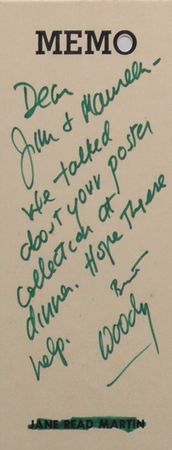 MEMO
Dear
Jim & Maureen –
We talked
about your poster
collection at
dinner. Hope these
help.
Best
Woody
JANE READ MARTIN